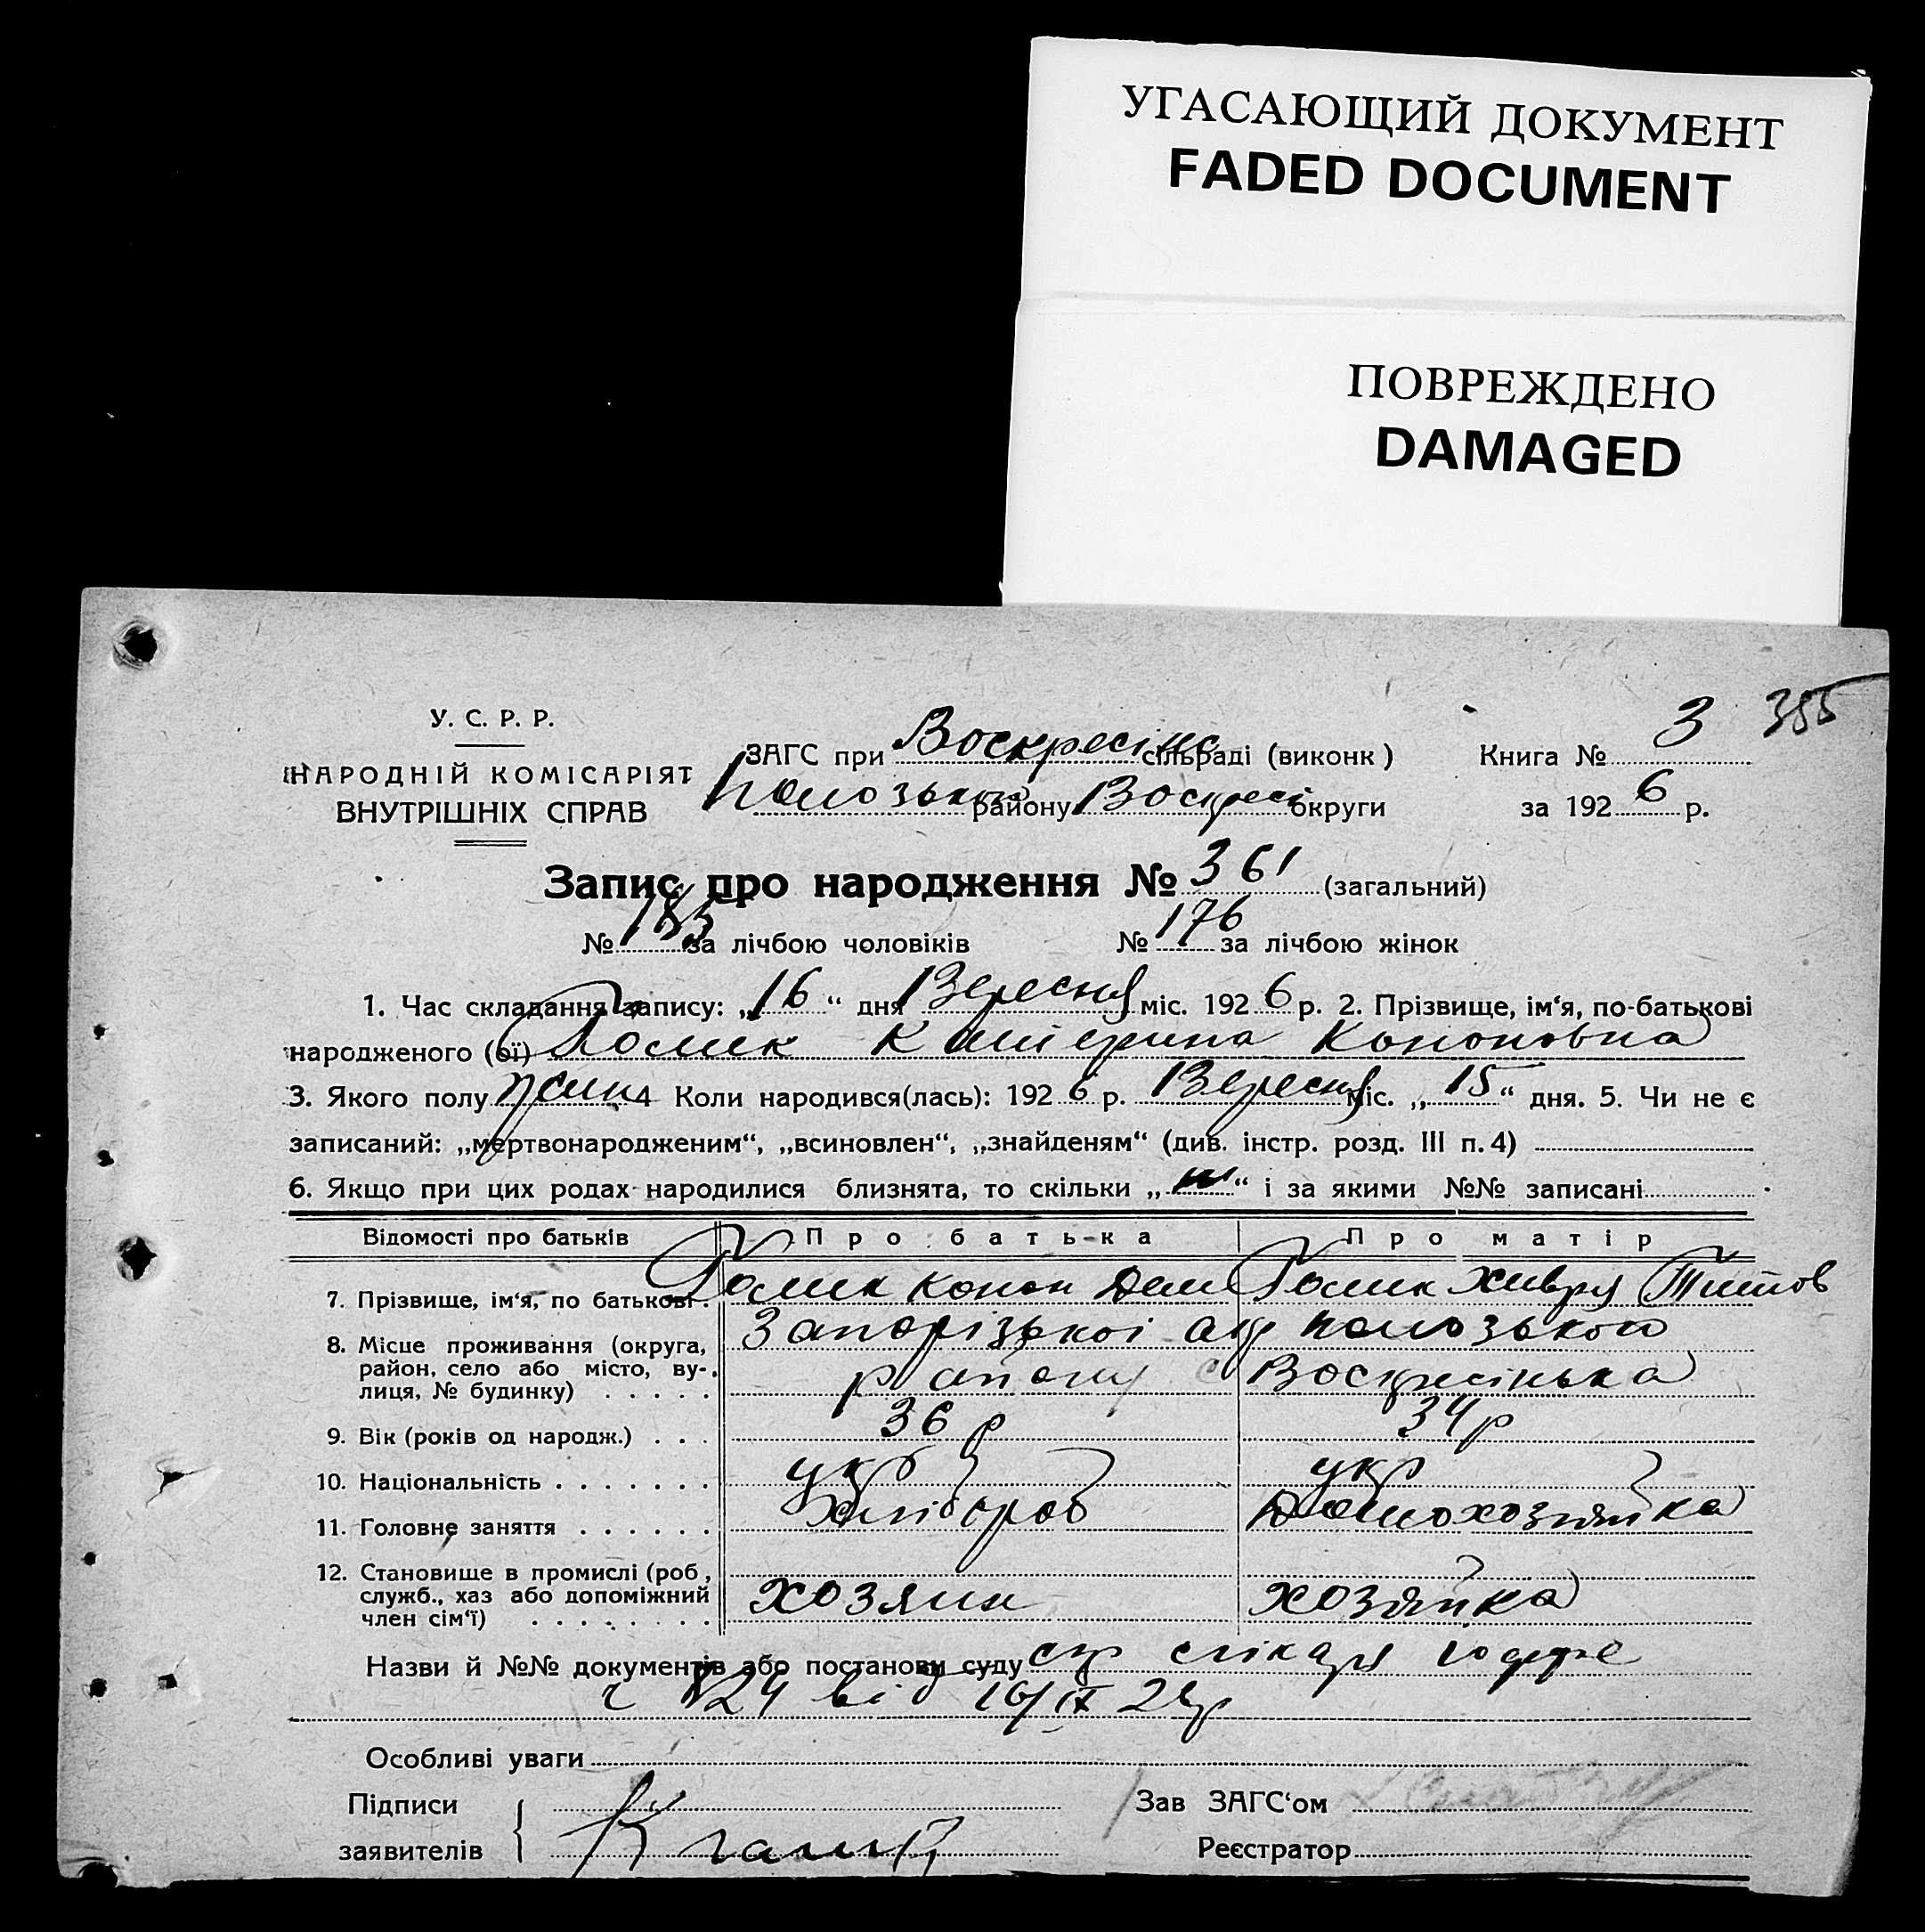 УГАСАЮЩИЙ ДОКУМЕНТ
FADED DOCUMENT
ПОВРЕЖДЕНО
DAMAGED
385
У. С. Р. Р.
НАРОДНІЙ КОМІСАРІЯТ
ВНУТРІШНІХ СПРАВ
ЗАГС при Воскресінс сільраді (виконк)
Книга № 3
району Воскресі округи
за 1926 р.
Запис про народження № 361 (загальний)
№ 185 за лічбою чоловіків № 176 за лічбою жінок
1. Час складання запису: „16“ дня Вересня міс. 1926 р. 2. Прізвище, ім'я, по-батькові
народженого (ої) Катерина Кононовна
3. Якого полу 4 Коли народився(лась): 1926 р. Вересня міс. „15“ дня. 5. Чи не є
записаний: „мертвонародженим“, „всиновлен“, „знайденям“ (див. інстр. розд. III п. 4)
6. Якщо при цих родах народилися близнята, то скільки „ “ і за якими №№ записані
Відомості про батьків Про батька Про матір
7. Прізвище, ім'я, по батькові Конон Дем Хивря Титов
8. Місце проживання (округа, район, село або місто, вулиця, № будинку) Запорізької окр Пологського
району с Воскресінька
9. Вік (років од народж.) 36 р 34 р
10. Національність укр укр
11. Головне заняття Хлібороб Домохозяйка
12. Становище в промислі (роб, служб., хаз або допоміжний член сім'ї) хозяин хозяйка
Назви й №№ документів або постанови суду
ч 824 від 16/IX 26р
Особливі уваги
Підписи
заявителів
Зав ЗАГС'ом
Реєстратор